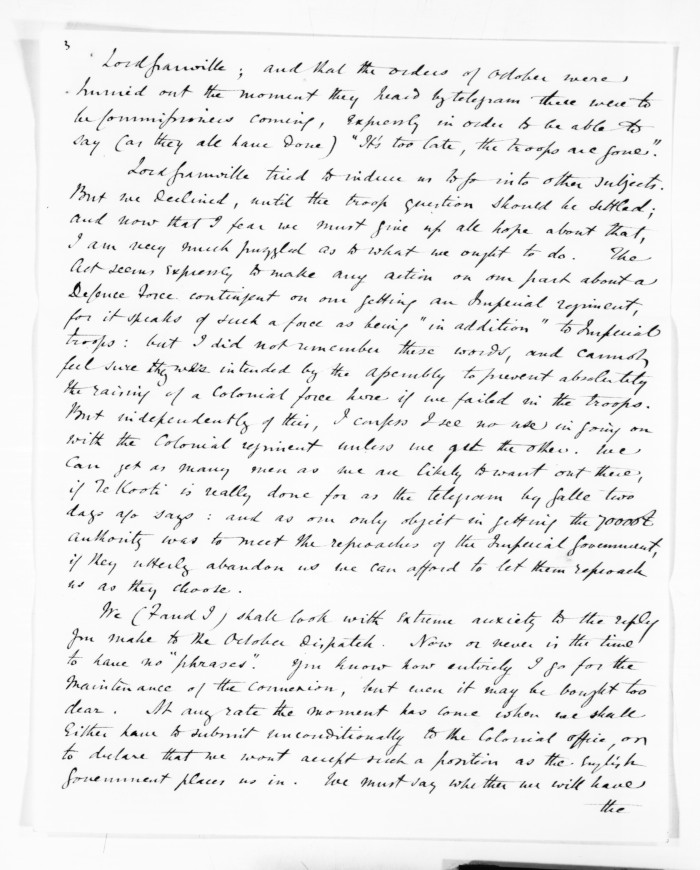 3
Lord Granville; and that the orders of October were
hurried out the moment they heard by telegram there were to
be Commissioners coming, expressly in order to be able to
say (as they all have done) "It's too late, the troops are gone".
Lord Granville tried to induce us to go into other subjects.
But we declined, until the troop question should be settled;
and now that I fear we must give up all hope about that,
I am very much puzzled as to what we ought to do. The
Act seems expressly to make any action on our part about a
Defence Force contingent on our getting an Imperial regiment,
for it speaks of such a force as being "in addition" to Imperial
troops: but I did not remember these words, and cannot
feel sure they were intended by the Assembly to prevent absolutely
the raising of a Colonial force here if we failed in the troops.
But independently of this, I confess I see no use in going on
with the Colonial regiment unless we get the other. We
can get as many men as we are likely to want out there,
if Te Kooti is really done for as the telegram by Galle two
days ago says: and as our only object in getting the 70000£
authority was to meet the reproaches of the Imperial Government,
if they utterly abandon us we can afford to let them reproach
us as they choose.
We (F and I) shall look with extreme anxiety to the reply
you make to the October Dispatch. Now or never is the time
to have no "phrases". You know how entirely I go for the
maintenance of the connexion, but even it may be bought too
dear. At any rate the moment has come when we shall
either have to submit unconditionally to the Colonial office, or
to declare that we wont accept such a position as the English
Government places us in. We must say whether we will have
the